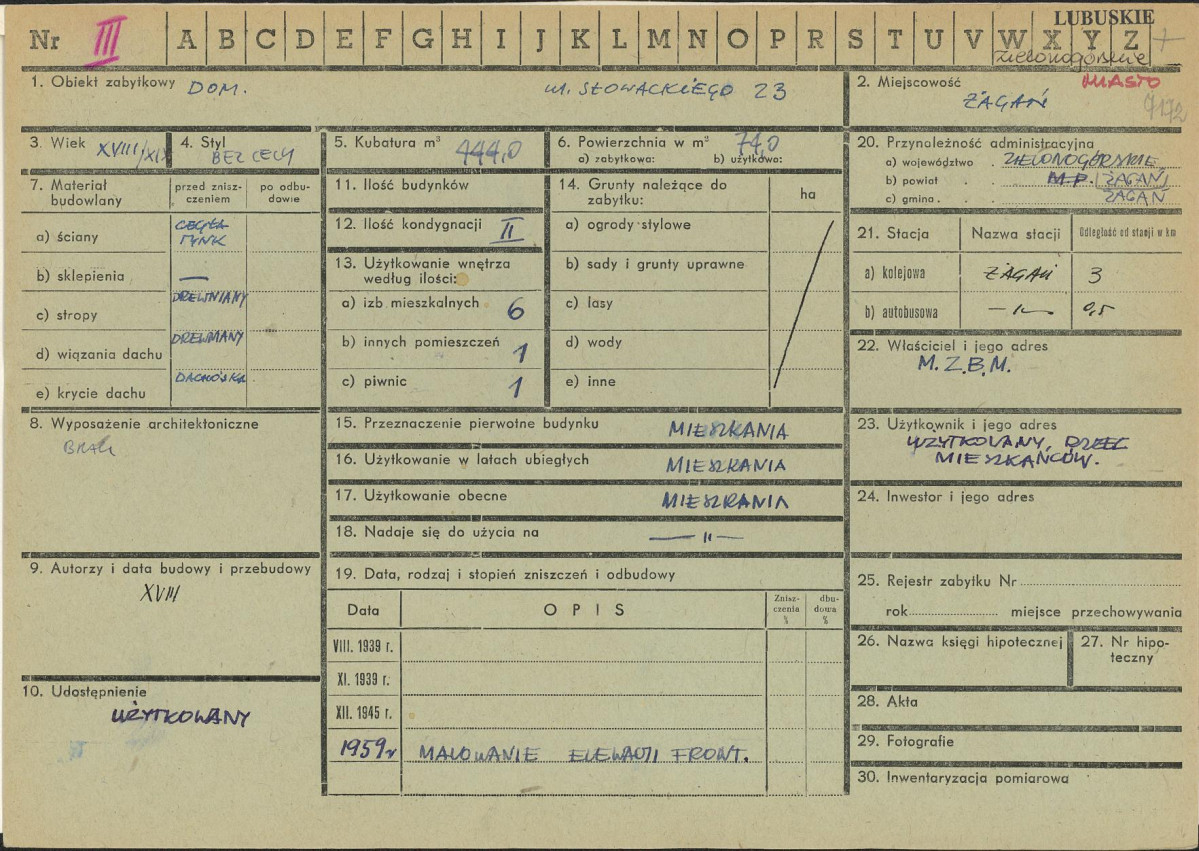 LUBUSKIE
Nr III A B C D E F G H I J K L M N O P R S T U V W X Y Z
zielonogórskie
1. Obiekt zabytkowy DOM. ul. SŁOWACKIEGO 23
2. Miejscowość MIASTO
ŻAGAŃ
3. Wiek XVIII/XIX
4. Styl BEZ CECH
5. Kubatura m³ 444,0
6. Powierzchnia w m² 74,0
a) zabytkowa: b) użytkowo:
7. Materiał budowlany
przed zniszczeniem
po odbudowie
a) ściany CEGŁA TYNK
b) sklepienia —
c) stropy DREWNIANY
d) wiązania dachu DREWNIANY
e) krycie dachu DACHÓWKA
8. Wyposażenie architektoniczne
BRAK
9. Autorzy i data budowy i przebudowy
XVIII
10. Udostępnienie
UŻYTKOWANY
11. Ilość budynków
12. Ilość kondygnacji II
13. Użytkowanie wnętrza
według ilości:
a) izb mieszkalnych 6
b) innych pomieszczeń 1
c) piwnic 1
14. Grunty należące do
zabytku:
ha
a) ogrody stylowe
b) sady i grunty uprawne
c) lasy
d) wody
e) inne
15. Przeznaczenie pierwotne budynku MIESZKANIA
16. Użytkowanie w latach ubiegłych MIESZKANIA
17. Użytkowanie obecne MIESZKANIA
18. Nadaje się do użycia na — " —
19. Data, rodzaj i stopień zniszczeń i odbudowy
Data OPIS Zniszczenia % dbudowa %
VIII. 1939 r.
XI. 1939 r.
XII. 1945 r.
1959 r MALOWANIE ELEWACJI FRONT.
20. Przynoleżność administracyjna
a) województwo ZIELONOGÓRSKIE
b) powiat M.P. ŻAGAŃ
c) gmina ŻAGAŃ
21. Stacja Nazwa stacji Odległość od stacji w km
a) kolejowa ŻAGAŃ 3
b) autobusowa — " — 0,5
22. Właściciel i jego adres
M.Z.B.M.
23. Użytkownik i jego adres
UŻYTKOWANY PRZEZ
MIESZKAŃCÓW.
24. Inwestor i jego adres
25. Rejestr zabytku Nr
rok miejsce przechowywania
26. Nazwa księgi hipotecznej
27. Nr hipoteczny
28. Akta
29. Fotografie
30. Inwentaryzacja pomiarowa